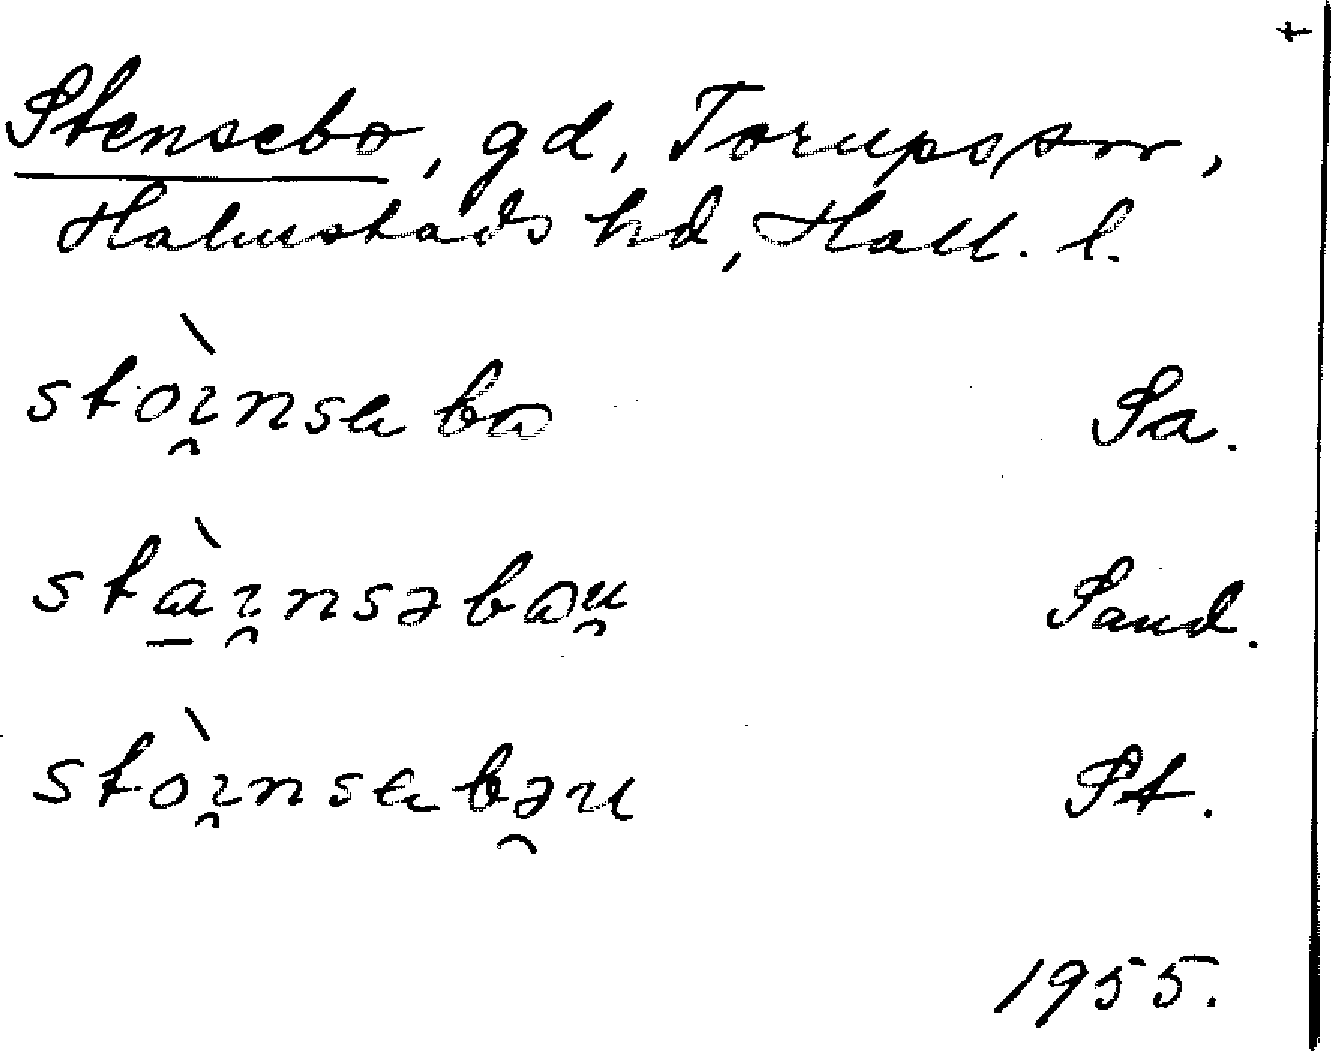 +
Stensebo, gd, Torups sn,
Halmstads hd, Hall. l.
stòı̯nsebɷ Sa.
stɑ̱̀ı̯nsəbɷu̯ Sand.
stòı̯nsebə̯u St.
1955.